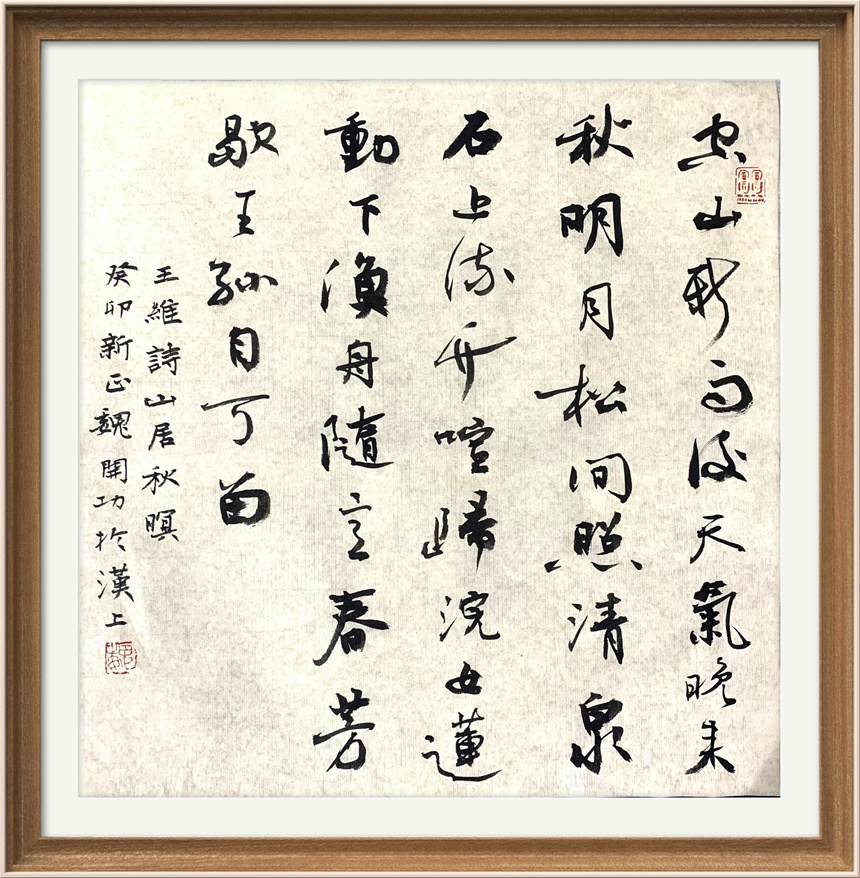 空山新雨後天氣晚来
秋明月松間照清泉
石上流竹喧歸浣女蓮
動下漁舟隨意春芳
歇王孫自可留
王維詩山居秋暝
癸卯新正魏開功於漢上